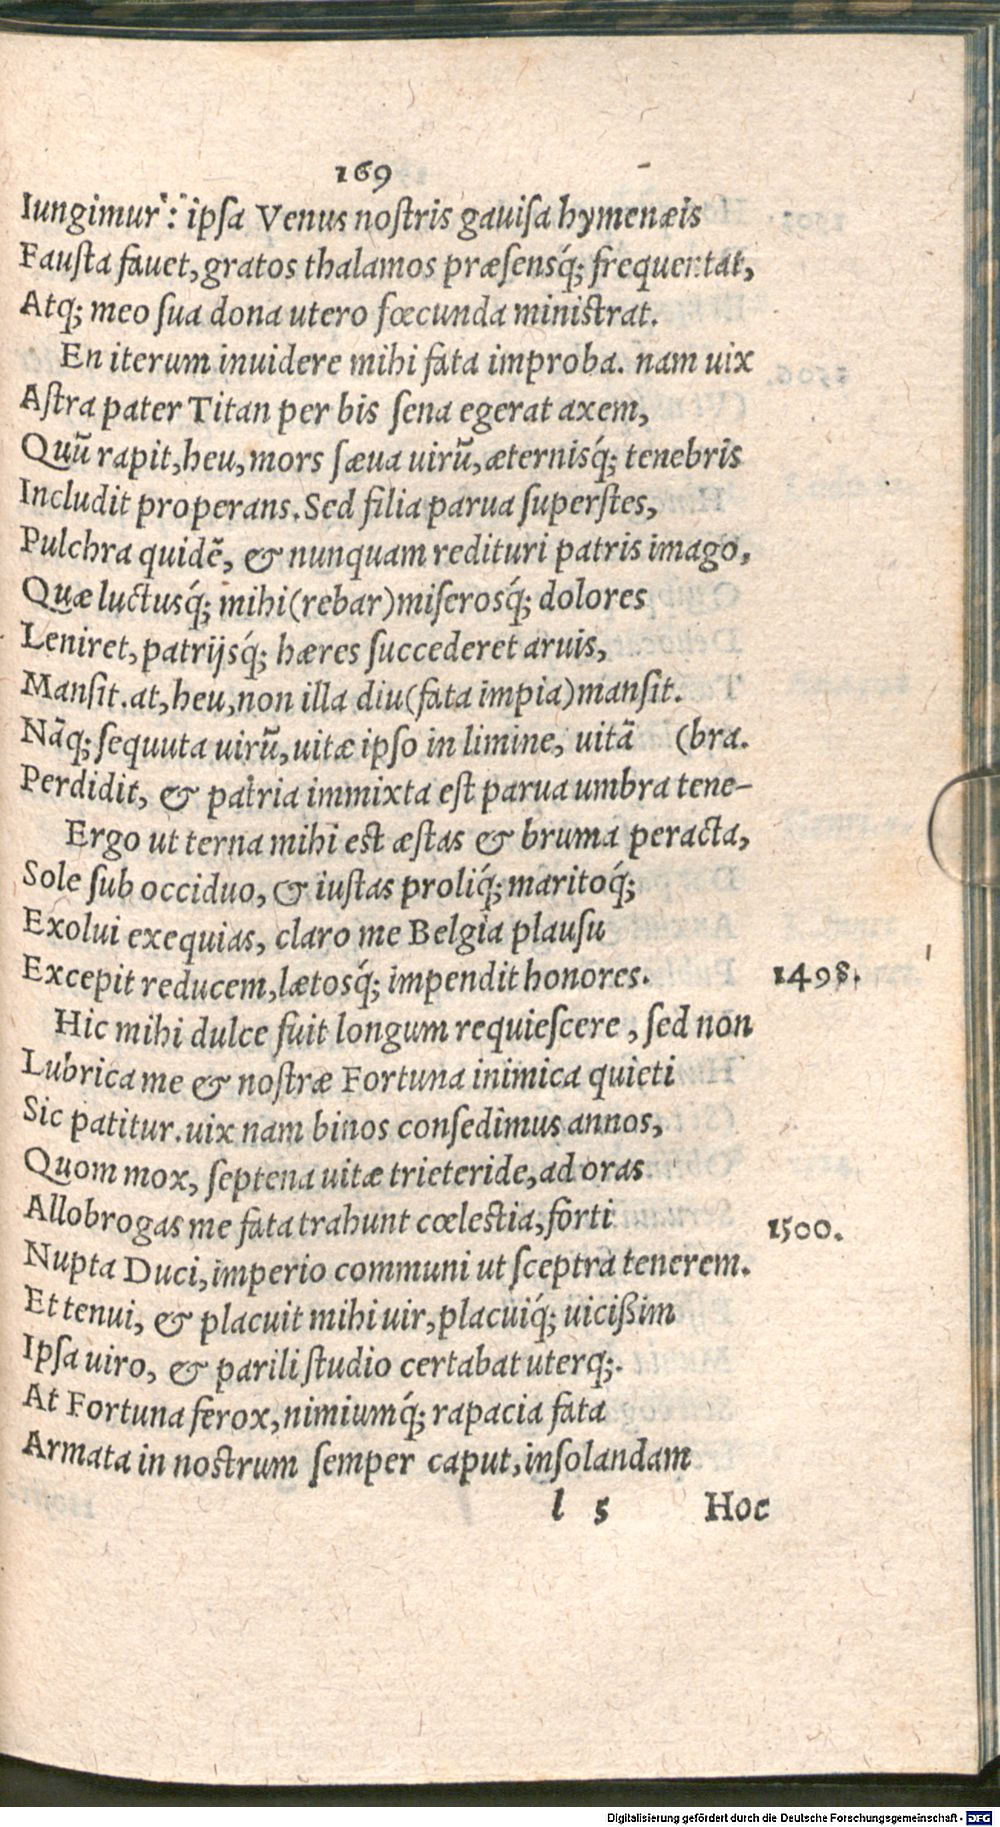 169
Iungimur: ipſa Venus noſtris gauiſa hymenæis
Fauſta fauet, gratos thalamos præſensq́; frequentat,
Atq; meo ſua dona utero fœcunda miniſtrat.
En iterum inuidere mihi fata improba. nam uix
Aſtra pater Titan per bis ſena egerat axem,
Quũ rapit, heu, mors ſæua uirũ, æternisq́; tenebris
Includit properans. Sed filia parua ſuperſtes,
Pulchra quidẽ, & nunquam redituri patris imago,
Quæ luctusq́; mihi (rebar) miſerosq́; dolores
Leniret, patrijsq́; hæres ſuccederet aruis,
Manſit. at, heu, non illa diu (fata impia) manſit.
Nãq; ſequuta uirũ, uitæ ipſo in limine, uitã (bra.
Perdidit, & patria immixta eſt parua umbra tene-
Ergo ut terna mihi eſt æſtas & bruma peracta,
Sole ſub occiduo, & iuſtas proliq́; maritoq́;
Exolui exequias, claro me Belgia plauſu
Excepit reducem, lætosq́; impendit honores. 1498.
Hic mihi dulce fuit longum requieſcere, ſed non
Lubrica me & noſtræ Fortuna inimica quieti
Sic patitur. uix nam binos conſedimus annos,
Quom mox, ſeptena uitæ trieteride, ad oras
Allobrogas me fata trahunt cœleſtia, forti 1500.
Nupta Duci, imperio communi ut ſceptra tenerem.
Et tenui, & placuit mihi uir, placuiq́; uicißim
Ipſa uiro, & parili ſtudio certabat uterq;.
At Fortuna ferox, nimiumq́; rapacia fata
Armata in noſtrum ſemper caput, inſolandam
l 5 Hoc
Digitalisierung gefördert durch die Deutsche Forschungsgemeinschaft - DFG